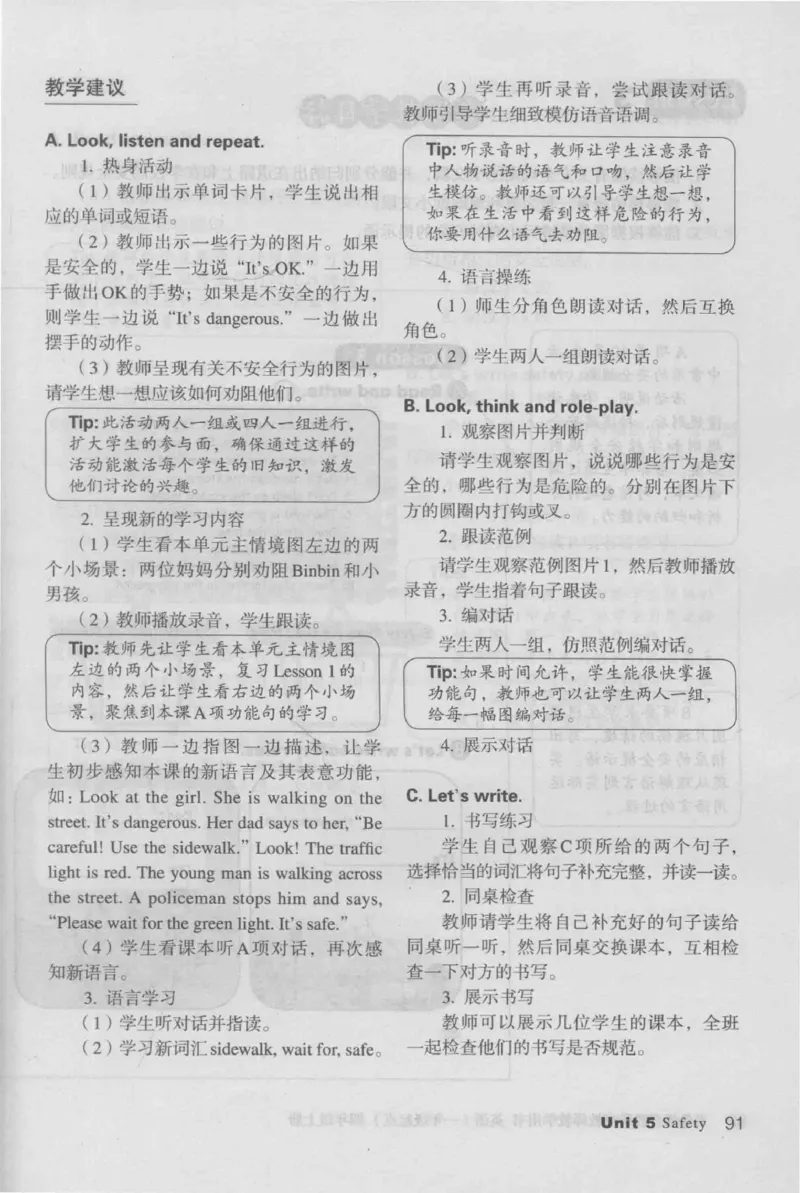 教学建议
A. Look, listen and repeat.
1. 热身活动
（1）教师出示单词卡片，学生说出相
应的单词或短语。
（2）教师出示一些行为的图片。如果
是安全的，学生一边说“It's OK.”一边用
手做出OK的手势；如果是不安全的行为，
则学生一边说“It's dangerous.”一边做出
摆手的动作。
（3）教师呈现有关不安全行为的图片，
请学生想一想应该如何劝阻他们。
Tip:此活动两人一组或四人一组进行，
扩大学生的参与面，确保通过这样的
活动能激活每个学生的旧知识，激发
他们讨论的兴趣。
2. 呈现新的学习内容
（1）学生看本单元主情境图左边的两
个小场景：两位妈妈分别劝阻Binbin和小
男孩。
（2）教师播放录音，学生跟读。
Tip:教师先让学生看本单元主情境图
左边的两个小场景，复习Lesson 1的
内容，然后让学生看右边的两个小场
景，聚焦到本课A项功能句的学习。
（3）教师一边指图一边描述，让学
生初步感知本课的新语言及其表意功能，
如：Look at the girl. She is walking on the
street. It's dangerous. Her dad says to her, “Be
careful! Use the sidewalk.” Look! The traffic
light is red. The young man is walking across
the street. A policeman stops him and says,
“Please wait for the green light. It's safe.”
（4）学生看课本听A项对话，再次感
知新语言。
3. 语言学习
（1）学生听对话并指读。
（2）学习新词汇sidewalk, wait for, safe。
（3）学生再听录音，尝试跟读对话。
教师引导学生细致模仿语音语调。
Tip:听录音时，教师让学生注意录音
中人物说话的语气和口吻，然后让学
生模仿。教师还可以引导学生想一想，
如果在生活中看到这样危险的行为，
你要用什么语气去劝阻。
4. 语言操练
（1）师生分角色朗读对话，然后互换
角色。
（2）学生两人一组朗读对话。
B. Look, think and role-play.
1. 观察图片并判断
请学生观察图片，说说哪些行为是安
全的，哪些行为是危险的。分别在图片下
方的圆圈内打钩或叉。
2. 跟读范例
请学生观察范例图片1，然后教师播放
录音，学生指着句子跟读。
3. 编对话
学生两人一组，仿照范例编对话。
Tip:如果时间允许，学生能很快掌握
功能句，教师也可以让学生两人一组，
给每一幅图编对话。
4. 展示对话
C. Let's write.
1. 书写练习
学生自己观察C项所给的两个句子，
选择恰当的词汇将句子补充完整，并读一读。
2. 同桌检查
教师请学生将自己补充好的句子读给
同桌听一听，然后同桌交换课本，互相检
查一下对方的书写。
3. 展示书写
教师可以展示几位学生的课本，全班
一起检查他们的书写是否规范。
Unit 5 Safety 91